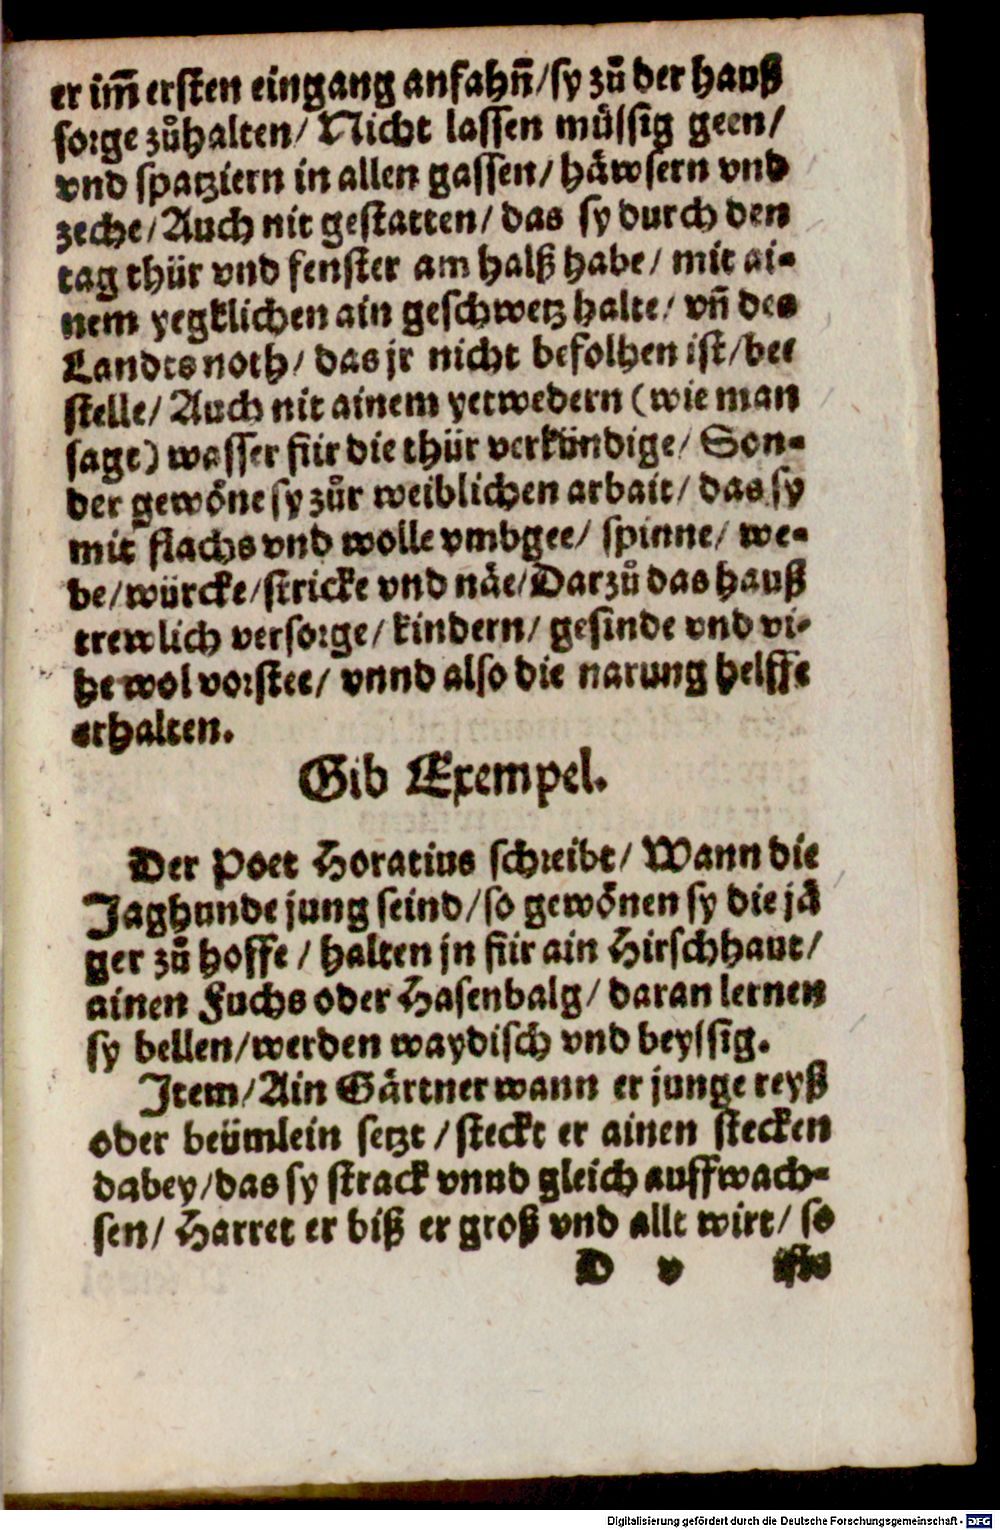 er im̃ ersten eingang anfahñ/sy zů der hauß
sorge zůhalten/ Nicht lassen müssig geen/
vnd spatziern in allen gassen/ häwsern vnd
zeche/Auch nit gestatten/ das sy durch den
tag thür vnd fenster am halß habe/ mit ai-
nem yegklichen ain geschwetz halte/ vñ des
Landts noth/ das jr nicht befolhen ist/be
stelle/ Auch nit ainem yetwedern (wie man
sagt) wasser für die thür verkündige/ Son-
der gewöne sy zůr weiblichen arbait/ das sy
mit flachs vnd wolle vmbgee/ spinne/ we-
be/würcke/stricke vnd näe/Darzů das hauß
trewlich versorge/ kindern/ gesinde vnd vi-
he wol vorstee/ vnnd also die narung helffe
erhalten.
Gib Exempel.
Der Poet Horatius schreibt/ Wann die
Jaghunde jung seind/so gewönen sy die jä
ger zů hoffe/ halten jn für ain Hirschhaut/
ainen Fuchs oder Hasenbalg/ daran lernen
sy bellen/werden waydisch vnd beyssig.
Item/Ain Gärtner wann er junge reyß
oder beümlein setzt/steckt er ainen stecken
dabey/das sy strack vnnd gleich auffwach-
sen/ Harret er biß er groß vnd allt wirt/ so
D v
Digitalisierung gefördert durch die Deutsche Forschungsgemeinschaft - DFG